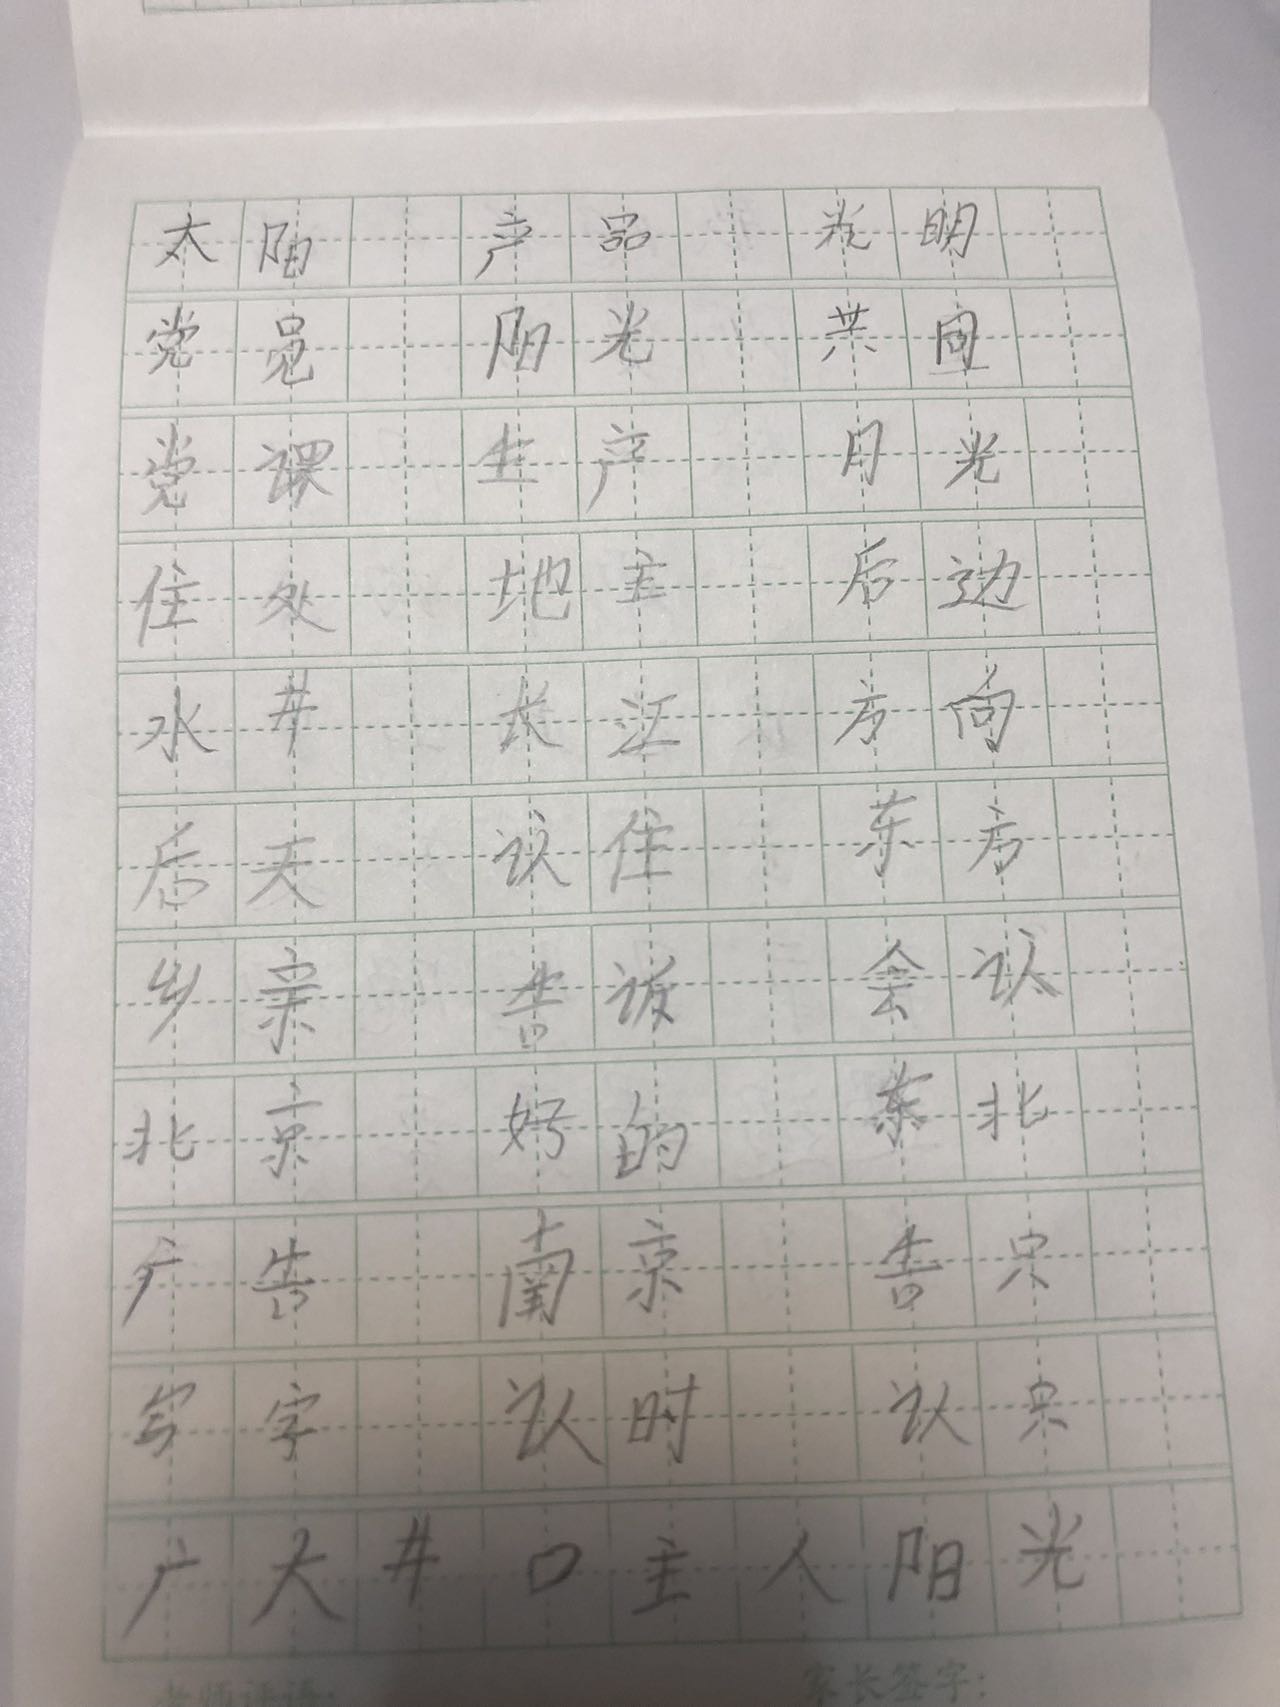 太阳 产品 光明
党员 阳光 共同
党课 生产 月光
住处 地主 后边
水井 长江 方向
后天 认住 东方
乡亲 告诉 会认
北京 好的 东北
广告 南京 告只
写字 认时 认只
广大井口主人阳光
老师评语: 家长签字: